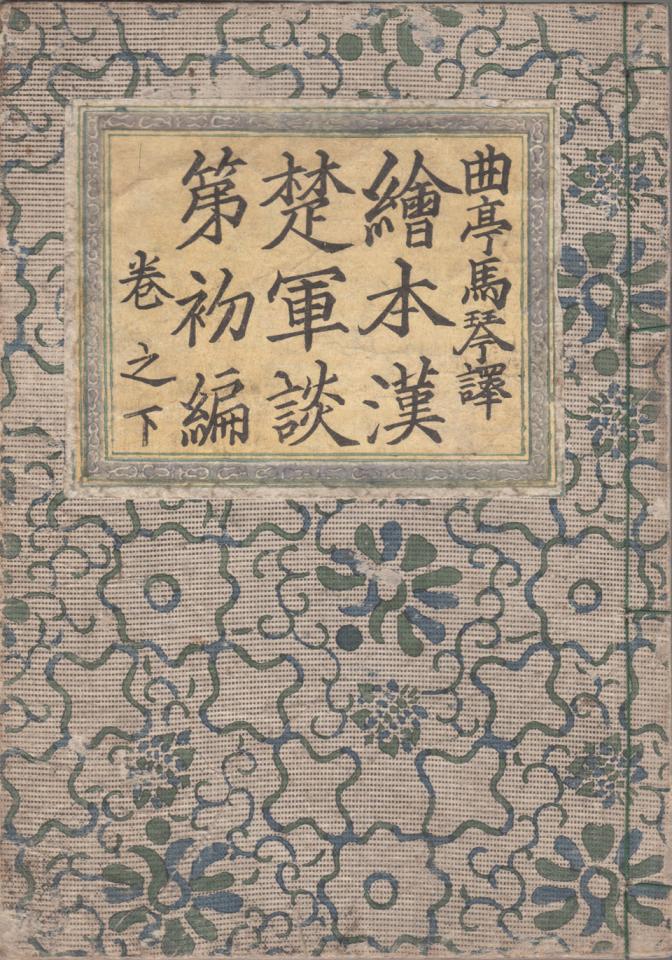 曲亭馬琴譯
繪本漢
楚軍談
第初編
卷之下